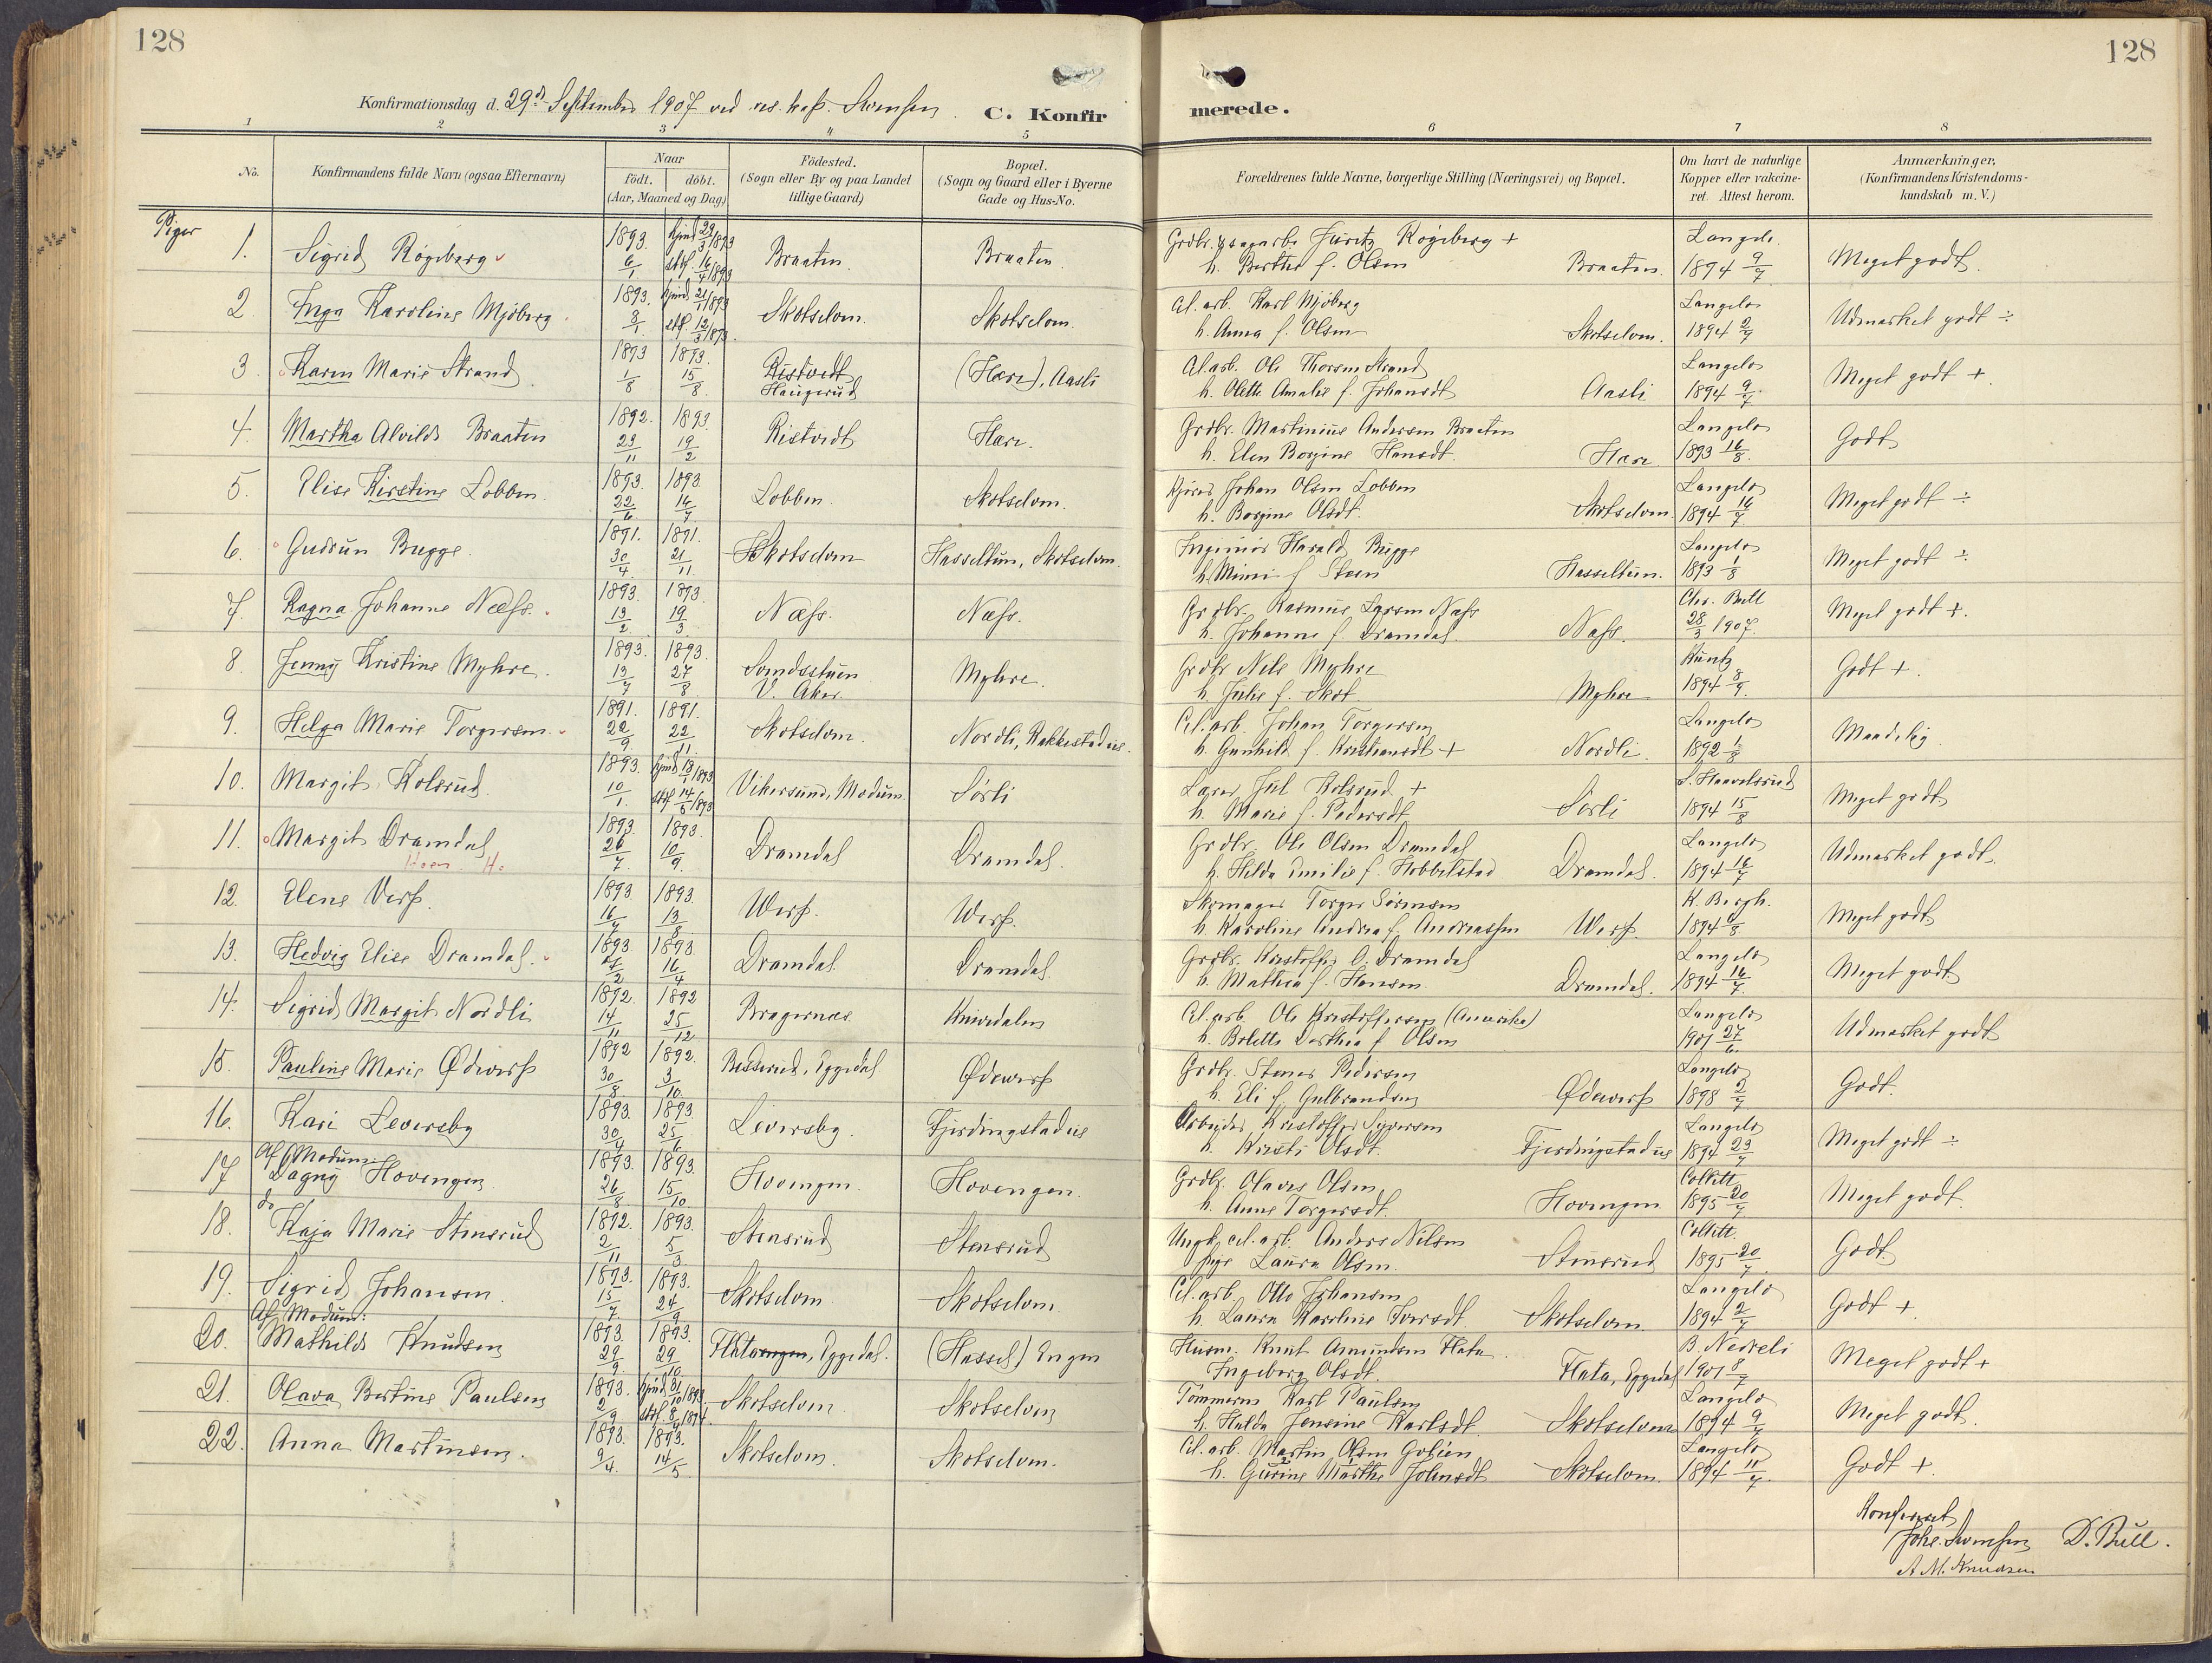 128
128
Konfirmationsdag d. 29de September 1907 ved res. kap. Svensen
C. Konfir
merede.
1 2 3 4 5 6 7 8
No.
Konfirmandens fulde Navn (ogsaa Efternavn)
Naar
födt. döbt.
(Aar, Maaned og Dag)
Födested.
(Sogn eller By og paa Landet
tillige Gaard)
Bopæl.
(Sogn og Gaard eller i Byerne
Gade og Hus-No.
Forældrenes fulde Navne, borgerlige Stilling (Næringsvei) og Bopæl.
Om havt de naturlige
Kopper eller vakcine-
ret. Attest herom.
Anmærkninger,
(Konfirmandens Kristendoms-
kundskab m. V.)
Piger
1. Sigrid Røgeberg 1893. 6/1 hjmd 29/3 1893 stf. 16/4 1893 Braaten. Braaten. Grdbr. Juritz Røgeberg + Langelo.
h. Berthe f. Olsen Braaten. 1894 9/7 Meget godt.
2 Inga Karoline Mjøberg 1893. 8/1 hjmd 21/1 1893 stf. 12/3 1893. Skotselven. Skotselven. Cel. arb. Karl Mjøberg Langelo
h. Anna f. Olsen Skotselven. 1894 2/7 Udmærket godt ÷
3 Karen Marie Strand 1893 1/8 1893. 15/8. Ristvedt Haugerud (Hære), Aasli Cel. arb. Ole Thorsen Strand Langelo
h. Olette Amalie f. Johansdt Aasli 1894 9/7 Meget godt +.
4. Martha Alvilde Braaten 1892. 23/11 1893. 19/2 Ristvedt Hære. Grdbr. Martinius Andersen Braaten Langelo
h. Elen Borgine Hansdt. Hære 1893 16/8. Godt
5. Elise Kirstine Lobben. 1893. 22/6 1893. 16/7 Lobben. Skotselven. Kjører Johan Olsen Lobben Langelo
h. Borgine Olsdt. Skotselven. 1894 16/7 Meget godt ÷
6. Gudrun Bugge. 1891. 30/4 1891. 21/11 Skotselven Hasseltun, Skotselven. Ingeniør Harald Bugge Langelo
h. Mimi f. Steen Hasseltun. 1893 1/8 Meget godt ÷.
7. Ragna Johanne Næss. 1893. 13/2 1893. 19/3 Næss. Næss. Grdbr. Rasmus Larsen Næss Chr. Bull
h. Johanne f. Dramdal. Næss. 28/3 1907. Meget godt +.
8. Jenny Kristine Myhre. 1893. 13/7 1893. 27/8 Sandsstuen V. Aker Myhre. Grdbr Nils Myhre Küntz
h. Julie f. Skot. Myhre 1894 8/9. Godt +.
9. Helga Marie Torgersen. 1891. 22/9 1891. 22/11. Skotselven. Nordli, Rakkestadeie. Cel. arb. Johan Torgersen Langelo
h. Gunhild f. Kristiansdt + Nordli. 1892 1/8 Maadelig
10. Margit Kolsrud. 1893. 10/1. hjmd 18/1 1893 stf 14/5 1893 Vikersund, Modum. Sørli Lærer Jul Kolsrud + S. Haavelsrud
h. Marie f. Pedersdt Sørli 1894 15/8 Meget godt
11. Margit Dramdal 1893. 26/7 1893. 10/9. Dramdal Dramdal. Grdbr. Ole Olsen Dramdal Langelo
h. Hilda Emilie f. Hobbelstad Dramdal. 1894 16/7 Udmærket godt.
12. Elene Verp. 1893. 16/7 1893. 13/8 Werp. Werp. Skomager Torger Sørensen K. Bergh.
h. Karoline Andrea f. Andreassen Werp. 1894 6/8 Meget godt
13. Hedvig Elise Dramdal. 1893. 1893. 16/4 Dramdal. Dramdal. Grdbr. Kristoffer O. Dramdal Langelo
h. Mathea f. Hansen. Dramdal. 1894 16/7 Meget godt
14. Sigrid Margit Nordli 1892. 14/11 1892 25/12 Bragernæs Knivedalen Cel. arb. Ole Kristoffersen (Amerika) Langelo
h. Bolette Dorthea f. Olsen 1901 27/6. Udmærket godt
15. Pauline Marie Ødeverp 1892 30/8 1892. 3/10. Besserud, Eggedal Ødeverp Grdbr. Stener Pedersen Langelo
h. Eli f. Gulbrandsen Ødeverp 1898 2/7 Godt.
16. Kari Leversby 1893. 30/4 1893. 25/6 Leversby. Fjerdingstadeie Arbeider Kristoffer Syversen Langelo
h. Kristi Olsdt. Fjerdingstadeie 1894 23/7 Meget godt ÷
Af Modum:
17 Dagny Hovengen 1893. 26/8 1893. 15/10 Hovengen. Hovengen. Grdbr. Olaves Olsen Collett
h. Anne Torgersdt. Hovengen 1895 20/7 Meget godt
do
18. Kaja Marie Stensrud 1892. 2/11 1893. 5/3 Stensrud Stensrud Ungk. cel. arb. Anders Nilsen Collett.
Pige Laura Olsen. Stensrud 1895 20/7 Godt
19. Sigrid Johansen. 1893. 15/7 1893. 24/9 Skotselven Skotselven. Cel. arb. Otto Johansen Langelo
h. Laura Karoline Iversdt. Skotselven. 1894 2/7 Godt +
Af Modum:
20. Mathilde Knudsen 1893. 22/9 1893. 29/10 Flatvengen, Eggedal. (Hassel) Engen Husm. Knut Amundsen Flata B. Neereli
Ingeborg Olsdt. Flata, Eggedal 1901 8/7 Meget godt +
21. Olava Bertine Paulsen 1893. 2/9 hjmd 31/10 1893 stf. 8/4 1894. Skotselven. Skotselven Tømmerm. Karl Paulsen Langelo
h. Hulda Jensine Karlsdt. Skotselven 1894 9/7 Meget godt.
22. Anna Martinsen. 1893. 9/4. 1893. 14/5. Skotselven. Skotselven. Cel. arb. Martin Olsen Golien Langelo
h. Gurine Marthe Johnsdt Skotselven. 1894 11/7. Godt +.
Konfereret
Johs. Svensen D. Bull.
A. M. Knudsen